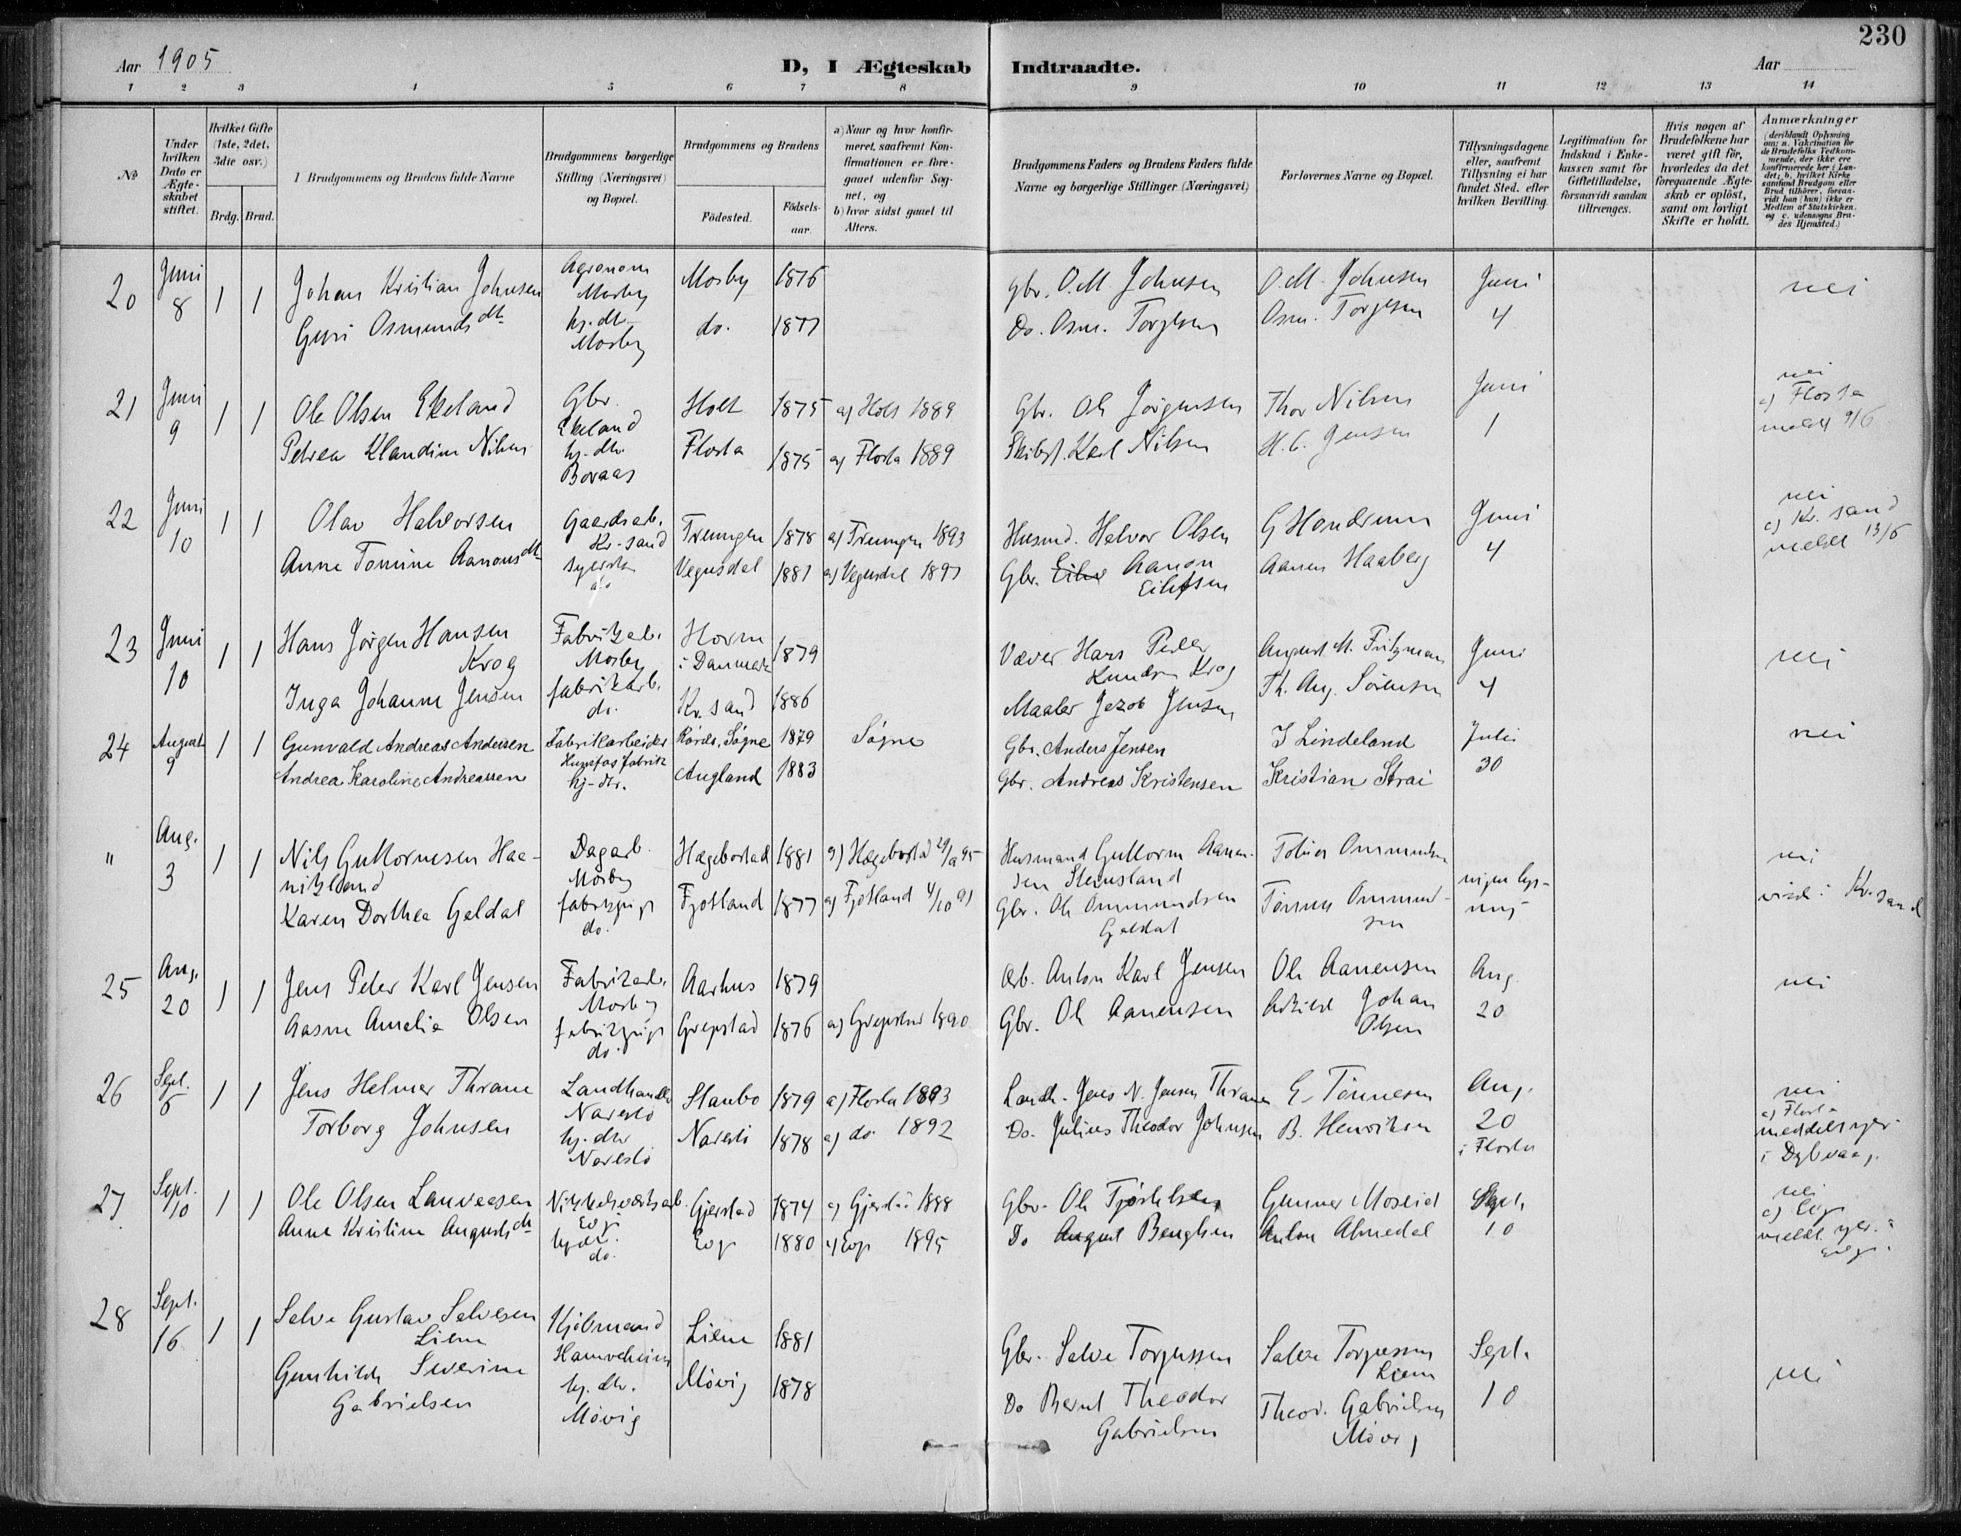 230
Aar 1905
D, I Ægteskab Indtraadte.
Aar
1 2 3 4 5 6 7 8 9 10 11 12 13 14
No
Under hvilken Dato er Ægteskabet stiftet.
Hvilket Gifte (1ste, 2det, 3die osv.)
Brdg. Brud.
Brudgommens og Brudens fulde Navne
Brudgommens borgerlige Stilling (Næringsvei) og Bopæl.
Brudgommens og Brudens
Födested.
Födselsaar.
a) Naar og hvor konfirmeret, saafremt Konfirmationen er foregaaet udenfor Sognet, og
b) hvor sidst gaaet til Alters.
Brudgommens Faders og Brudens Faders fulde Navne og borgerlige Stillinger (Næringsvei)
Forlovernes Navne og Bopæl.
Tillysningsdagene eller, saafremt Tillysning ei har fundet Sted, efter hvilken Bevilling.
Legitimation for Indskud i Enkekassen samt for Giftetilladelse, forsaavidt saadan tiltrænges.
Hvis nogen af Brudefolkene har været gift för, hvorledes da det foregaaende Ægteskab er oplöst, samt om lovligt Skifte er holdt.
Anmærkninger
(deriblandt Oplysning om: a. Vakcination for de Brudefolks Vedkommende, der ikke ere konfirmerede her i Landet; b. hvilket Kirkesamfund Brudgom eller Brud tilhörer, forsaavidt han (hun) ikke er Medlem af Statskirken, og c. udensogns Brudes Hjemsted.)
20 Juni 8 1 1 Johan Kristian Johnsen Agronom Mosby Mosby 1876 Gbr. O.M Johnsen O.M. Johnsen Juni 4 nei
Guri Osmundsdtr hj.dtr. Mosby do. 1877 Do. Osm. Torgesen Osm. Torgesen
21 Juni 9 1 1 Ole Olsen Ekeland Gbr. Ekeland Holt 1875 a) Holt 1889 Gbr. Ole Jørgensen Thor Nilsen Juni 1 nei
c) Flosta meldt 9/6
Petrea Klandine Nilsen hj.dtr. Boraas Flosta 1875 a) Flosta 1889 Skibsf. Karl Nilsen H.C. Jensen
22 Juni 10 1 1 Olav Halvorsen Gaardsarb. Kr-sand Treungen 1878 a) Treungen 1893 Husmd. Halvor Olsen G Hondrum Juni 4 nei
c) Kr.sand meldt 13/6
Anne Tomine Aanonsdtr syerske do Vegusdal 1881 a) Vegusdal 1897 Gbr. Aanon Eilefsen Aanen Haaberg
23 Juni 10 1 1 Hans Jørgen Hansen Krog Fabrikarb. Mosby i Danmark 1879 Væver Hans Peder Knudsen Krog August M. Fritzman Juni 4 nei
Inga Johanne Jensen fabrikarb. do. Kr.sand 1886 Maaler Jakob Jensen Th. Aug. Sörensen
24 August 9 1 1 Gunvald Andreas Andersen Fabrikarbeider Hunsfos fabrik Søgne 1879 Søgne Gbr. Anders Jensen I Lindeland Juli 30 nei
Andrea Karoline Andreassen hj-dtr. Augland 1883 Gbr. Andreas Kristensen Kristian Strai
" Aug. 3 1 1 Nils Guttormsen Dagarb. Mosby Hægebostad 1881 a) Hægebostad 95 Husmand Guttorm Aanensen Stensland Tobias Ommundsen ingen lysning nei
viet i Kr.sand
Karen Dorthea Geldal fabrikpige do. Fjotland 1877 a) Fjotland 4/10 91 Gbr. Ole Ommundsen Geldal Tönnes Ommundsen
25 Aug. 20 1 1 Jens Peter Karl Jensen Fabrikarb. Mosby Aarhus 1879 Arb. Anton Karl Jensen Ole Aanensen Aug. 20 nei
Aasne Amelia Olsen fabrikpige do. Grepstad 1876 a) Grepstad 1890 Gbr. Ole Aanensen Johan Olsen
26 Sept. 5 1 1 Jens Helmer Thrane Landhandler Narestö Staubo 1879 a) Flosta 1893 Landh. Jens N. Jensen Thrane E. Tönnesen Aug. 20 i Flosta nei
c) Flosta
i Dybvaag.
Torborg Johnsen hj.dtr Narestö Narestö 1878 a) do. 1892 Do. Julius Theodor Johnsen B. Henriksen
27 Sept. 10 1 1 Ole Olsen Lauveesen Evje Gjerstad 1874 a) Gjerstad 1888 Gbr. Ole Gunnar Moseid Sept. 10 nei
Anne Kristine Augustsdtr hj.dtr. do. Evje 1880 a) Evje 1895 Do August Bengtsen Anton Almedal
28 Sept. 16 1 1 Salve Gustav Salvesen Liene Kjöbmand Hamreheien Liene 1881 Gbr. Salve Torgussen Salve Torgussen Liene Sept. 10 nei
Gunhilde Severine Gabrielsen hj.dtr. Mövig Mövig 1878 Do Bernt Theodor Gabrielsen Theod. Gabrielsen Mövig